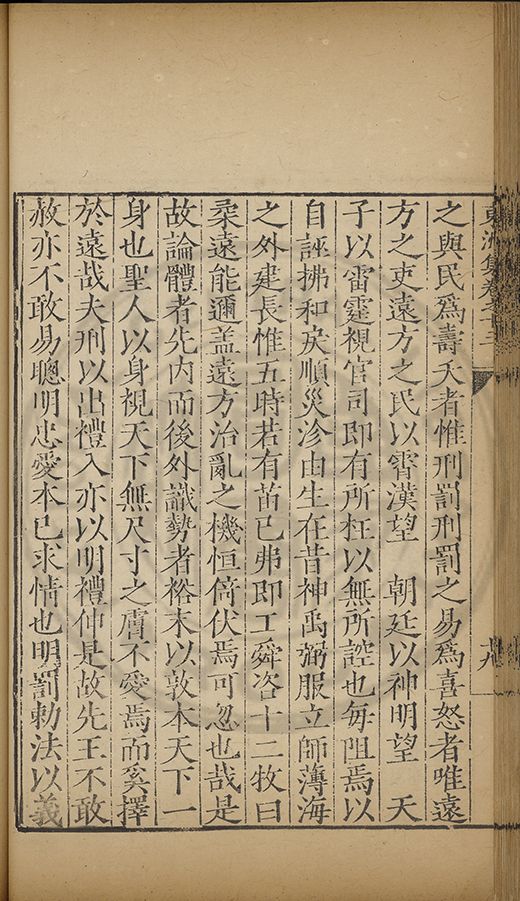 東洲集卷之十三
九
之與民為壽夭者惟刑罰刑罰之易為喜怒者唯遠
方之吏遠方之民以霄漢望　朝廷以神明望　天
子以雷霆視官司即有所枉以無所控也每阻焉以
自誣拂和戾順災沴由生在昔神禹弼服立師薄海
之外建長惟五時若有苗已弗即工舜咨十二牧曰
柔遠能邇盖遠方治亂之機恒倚伏焉可忽也哉是
故論體者先内而後外識勢者裕末以敦本天下一
身也聖人以身視天下無尺寸之膚不愛焉而奚擇
於遠哉夫刑以出禮入亦以明禮仲是故先王不敢
赦亦不敢易聰明忠愛本已求情也明罰勅法以義